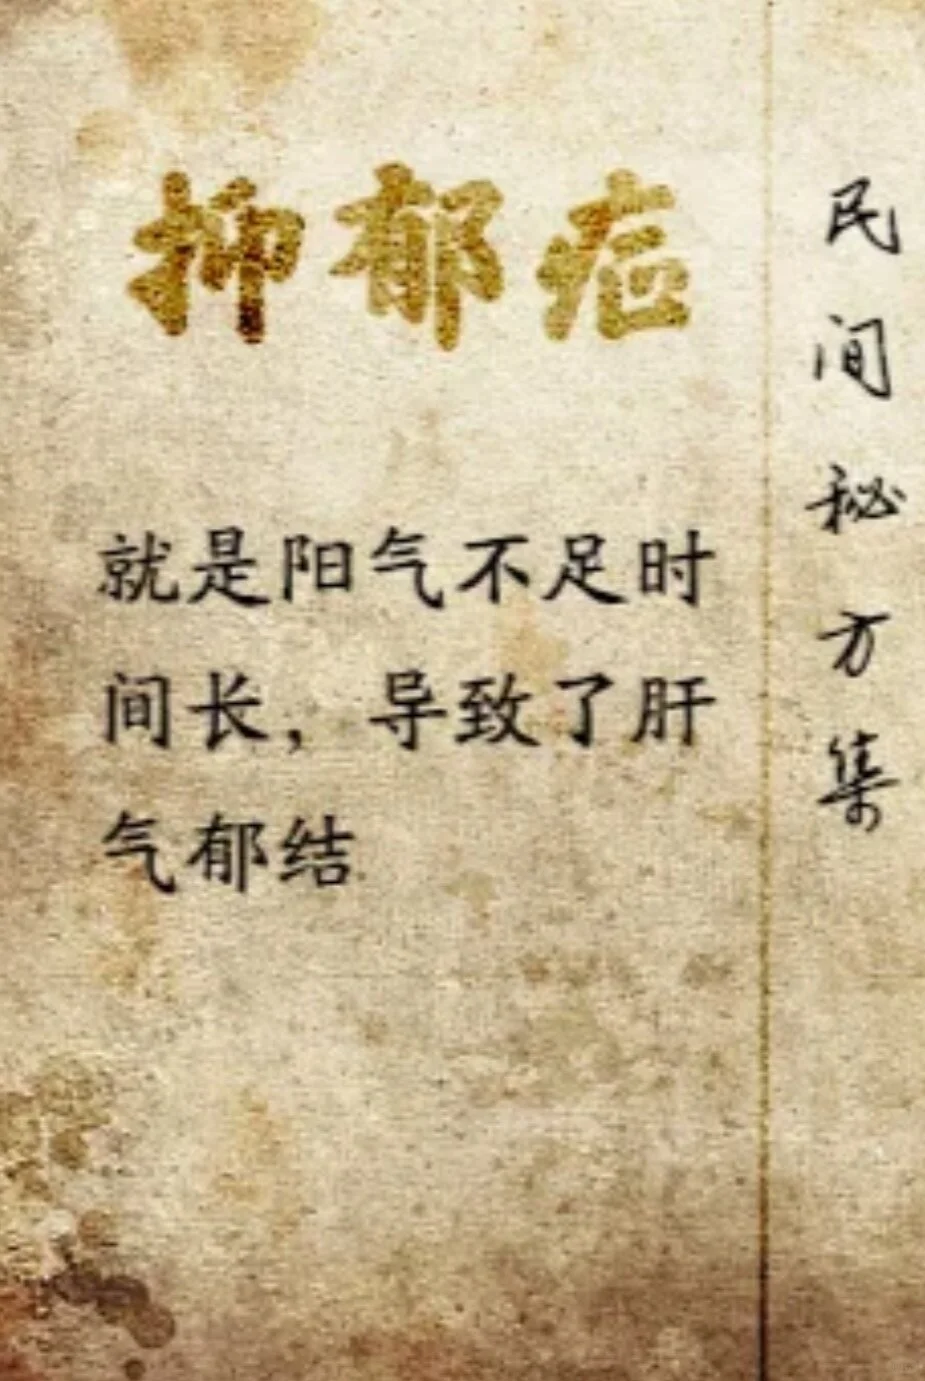 抑郁症
就是阳气不足时
间长，导致了肝
气郁结
民间秘方集